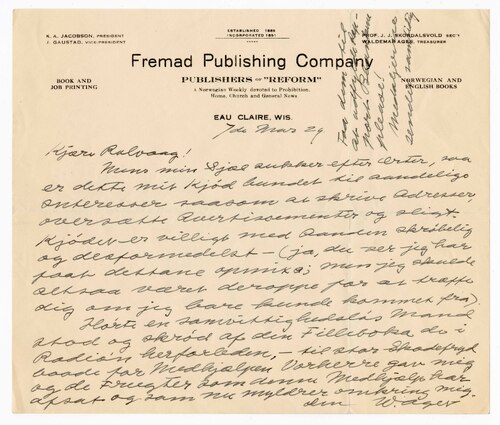 K. A. JACOBSON, PRESIDENT
J. GAUSTAD, VICE-PRESIDENT
ESTABLISHED 1886
INCORPORATED 1891
PROF. J. J. SKORDALSVOLD SEC'Y
WALDEMAR AGER, TREASURER
Fremad Publishing Company
PUBLISHERS OF "REFORM"
A Norwegian Weekly devoted to Prohibition,
Home, Church and General News
BOOK AND
JOB PRINTING
NORWEGIAN AND
ENGLISH BOOKS
EAU CLAIRE, WIS.
7de Mar 29
Kjære Rølvaag!
Mens min Sjæl sukker efter , saa
er dette mit Kjød bundet til aandelige
Interesser saasom at skrive Adresser,
oversætte Avertissementer og sligt.
Kjødet er villigt med Aanden skrøbelig
og desformedelst – (ja, du ser jeg har
faat dette ; men jeg skulde
altsaa været deroppe for at træffe
dig om jeg bare kunde kommet fra).
Hørte en samvittighedsløs Mand
stod og skrød af din i
Radioen herforleden, – til stor Skadefryd
baade for Medhjælpen Vorherre gav mig
og de Frugter som denne Medhjælp har
afsat og som nu myldrer omkring mig.
din W. Ager